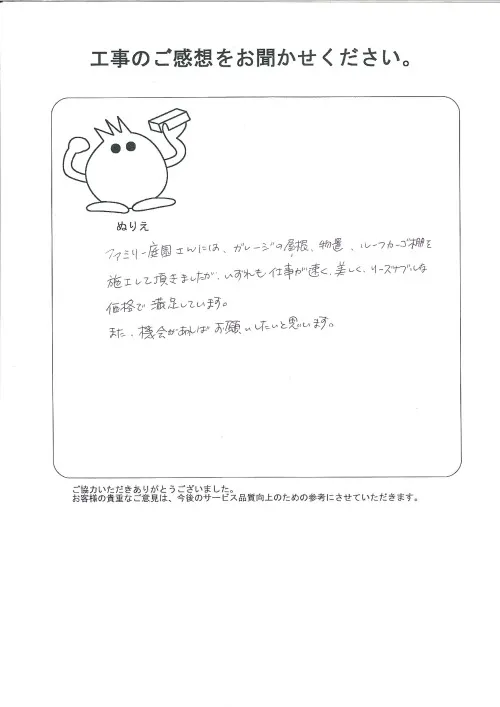 工事のご感想をお聞かせください。
ぬりえ
ファミリー庭園さんには、ガレージの屋根、物置、ルーフカーゴ棚を
施工して頂きましたが、いずれも仕事が速く、美しく、リーズナブルな
価格で満足しています。
また、機会があればお願いしたいと思います。
ご協力いただきありがとうございました。
お客様の貴重なご意見は、今後のサービス品質向上のための参考にさせていただきます。